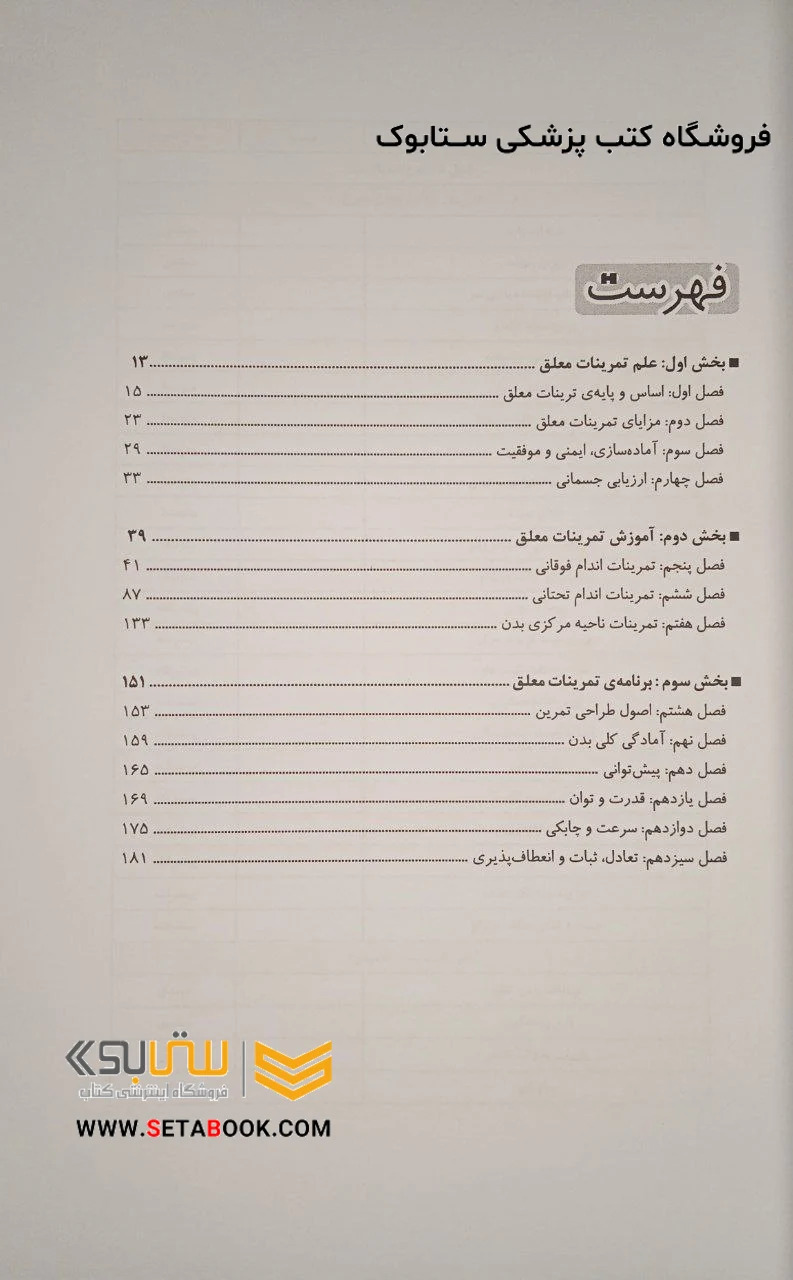 فروشگاه کتب پزشکی ســتابوک
فهرست
■ بخش اول: علم تمرینات معلق ........ ۱۳
فصل اول: اساس و پایه‌ی ترینات معلق ........ ۱۵
فصل دوم: مزایای تمرینات معلق ........ ۲۳
فصل سوم: آماده‌سازی، ایمنی و موفقیت ........ ۲۹
فصل چهارم: ارزیابی جسمانی ........ ۳۳
■ بخش دوم: آموزش تمرینات معلق ........ ۳۹
فصل پنجم: تمرینات اندام فوقانی ........ ۴۱
فصل ششم: تمرینات اندام تحتانی ........ ۸۷
فصل هفتم: تمرینات ناحیه مرکزی بدن ........ ۱۳۳
■ بخش سوم : برنامه‌ی تمرینات معلق ........ ۱۵۱
فصل هشتم: اصول طراحی تمرین ........ ۱۵۳
فصل نهم: آمادگی کلی بدن ........ ۱۵۹
فصل دهم: پیش‌توانی ........ ۱۶۵
فصل یازدهم: قدرت و توان ........ ۱۶۹
فصل دوازدهم: سرعت و چابکی ........ ۱۷۵
فصل سیزدهم: تعادل، ثبات و انعطاف‌پذیری ........ ۱۸۱
ستابوک
فروشگاه اینترنتی کتاب
WWW.SETABOOK.COM